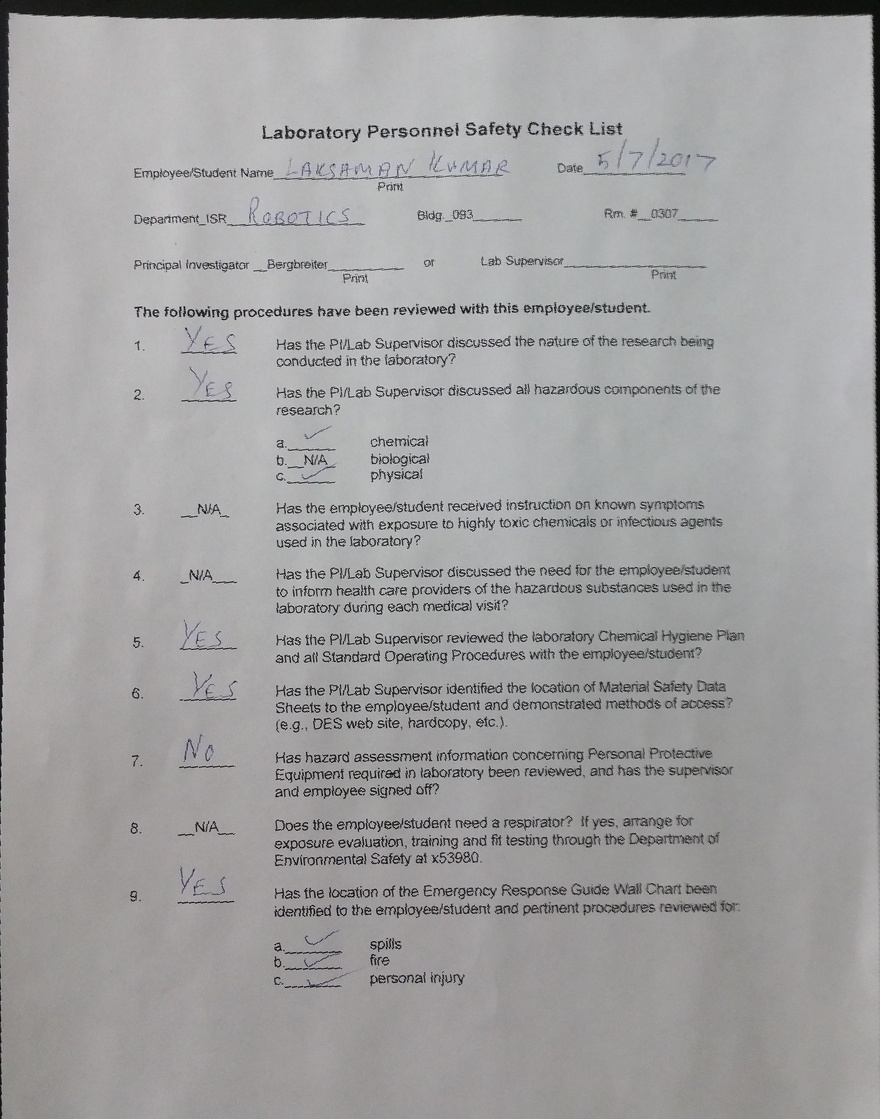 Laboratory Personnel Safety Check List
Employee/Student Name LAKSAMAN KUMAR Date 5/7/2017
Print
Department_ISR_ ROBOTICS Bldg._093______ Rm. #__0307_____
Principal Investigator __Bergbreiter__________ or Lab Supervisor____________________
Print Print
The following procedures have been reviewed with this employee/student.
1. YES Has the PI/Lab Supervisor discussed the nature of the research being
conducted in the laboratory?
2. YES Has the PI/Lab Supervisor discussed all hazardous components of the
research?
a. ✓ chemical
b.__N/A_ biological
c. ✓ physical
3. __N/A_ Has the employee/student received instruction on known symptoms
associated with exposure to highly toxic chemicals or infectious agents
used in the laboratory?
4. _N/A___ Has the PI/Lab Supervisor discussed the need for the employee/student
to inform health care providers of the hazardous substances used in the
laboratory during each medical visit?
5. YES Has the PI/Lab Supervisor reviewed the laboratory Chemical Hygiene Plan
and all Standard Operating Procedures with the employee/student?
6. YES Has the PI/Lab Supervisor identified the location of Material Safety Data
Sheets to the employee/student and demonstrated methods of access?
(e.g., DES web site, hardcopy, etc.).
7. NO Has hazard assessment information concerning Personal Protective
Equipment required in laboratory been reviewed, and has the supervisor
and employee signed off?
8. __N/A__ Does the employee/student need a respirator? If yes, arrange for
exposure evaluation, training and fit testing through the Department of
Environmental Safety at x53980.
9. YES Has the location of the Emergency Response Guide Wall Chart been
identified to the employee/student and pertinent procedures reviewed for:
a. ✓ spills
b. ✓ fire
c. ✓ personal injury